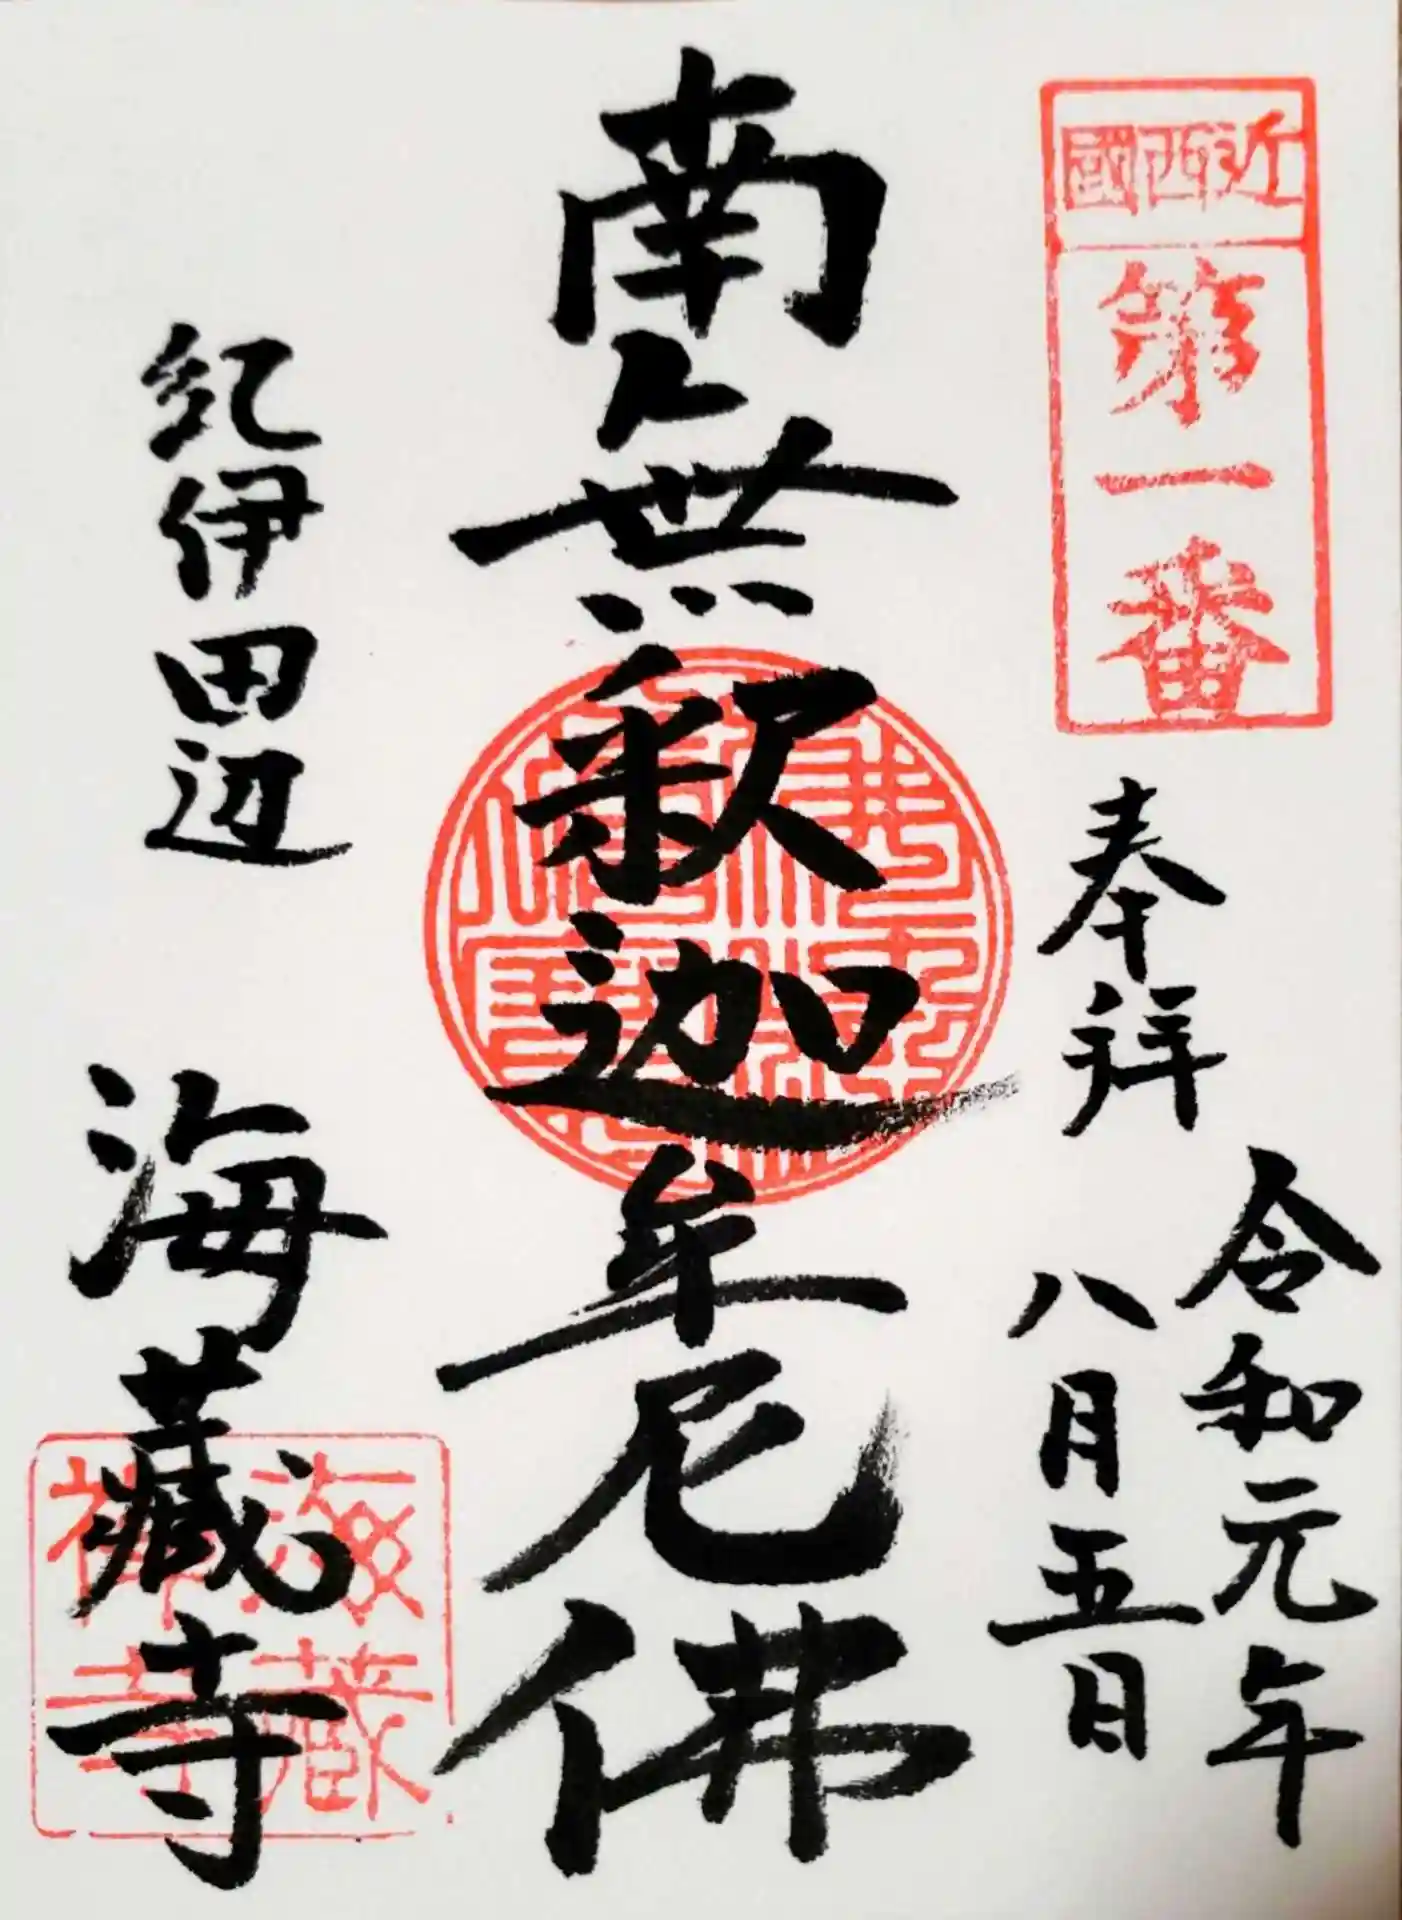 近西國
第一番
奉拜
令和元年
八月五日
南無釈迦牟尼佛
紀伊田辺
海蔵寺
海蔵
禅寺